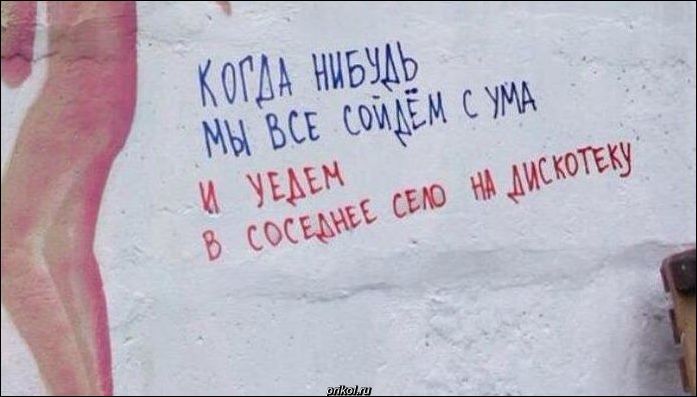 КОГДА НИБУДЬ
МЫ ВСЕ СОЙДЁМ С УМА
И УЕДЕМ
В СОСЕДНЕЕ СЕЛО НА ДИСКОТЕКУ
prikol.ru